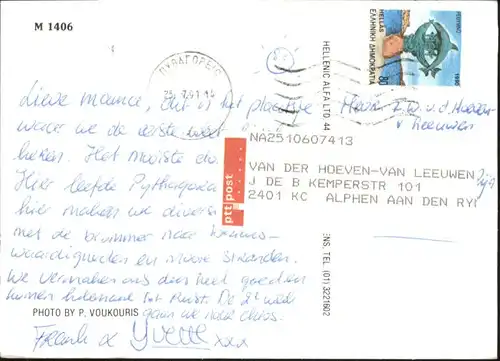 M 1406
ΠΥΘΑΓΟΡΕΙΟ
25. 7. 91. 14
HELLENIC ALFA LTD 44
ENS. TEL. (01) 3221602
ΕΛΛΗΝΙΚΗ ΔΗΜΟΚΡΑΤΙΑ
HELLAS
80
1990
Lieve Maurice, Dit is het plaatsje
waar we de eerste week
Het mooiste
Hier leefde Pythagoras
hier maken we
met de brommer naar
waardigheden en mooie stranden.
We vermaken ons dus heel goed en
komen helemaal tot Rust. De 2e week
gaan we naar
Frank & Yvette xxx
v Leeuwen
NA2510607413
ptt post
VAN DER HOEVEN-VAN LEEUWEN
J DE B KEMPERSTR 101
2401 KC ALPHEN AAN DEN RY
PHOTO BY P. VOUKOURIS